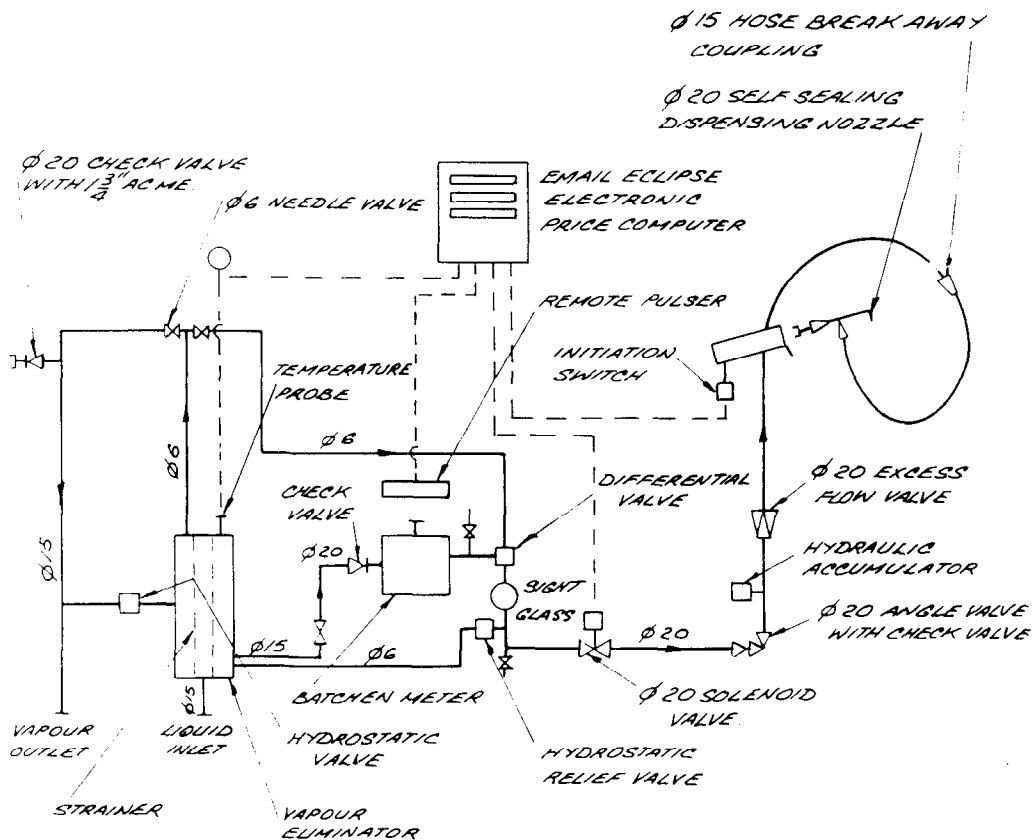 Ø15 HOSE BREAK AWAY
COUPLING
Ø20 SELF SEALING
DISPENSING NOZZLE
Ø20 CHECK VALVE
WITH 1 3/4" ACME
Ø6 NEEDLE VALVE
EMAIL ECLIPSE
ELECTRONIC
PRICE COMPUTER
REMOTE PULSER
INITIATION
SWITCH
TEMPERATURE
PROBE
Ø6
Ø6
DIFFERENTIAL
VALVE
Ø20 EXCESS
FLOW VALVE
CHECK
VALVE
Ø20
Ø15
HYDRAULIC
ACCUMULATOR
SIGHT
GLASS
Ø20 ANGLE VALVE
WITH CHECK VALVE
Ø15
Ø6
Ø20
BATCHEN METER
Ø20 SOLENOID
VALVE
Ø15
VAPOUR
OUTLET
LIQUID
INLET
HYDROSTATIC
VALVE
HYDROSTATIC
RELIEF VALVE
STRAINER
VAPOUR
ELIMINATOR